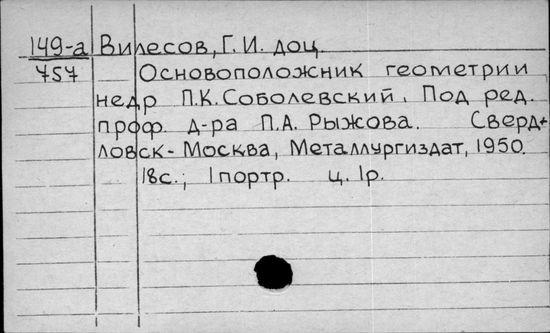 149-а Вилесов, Г. И. доц.
757 Основоположник геометрии
недр П.К. Соболевский. Под ред.
проф. д-ра П.А. Рыжова. Сверд-
ловск - Москва, Металлургиздат, 1950.
18с.; 1 портр. ц. 1р.